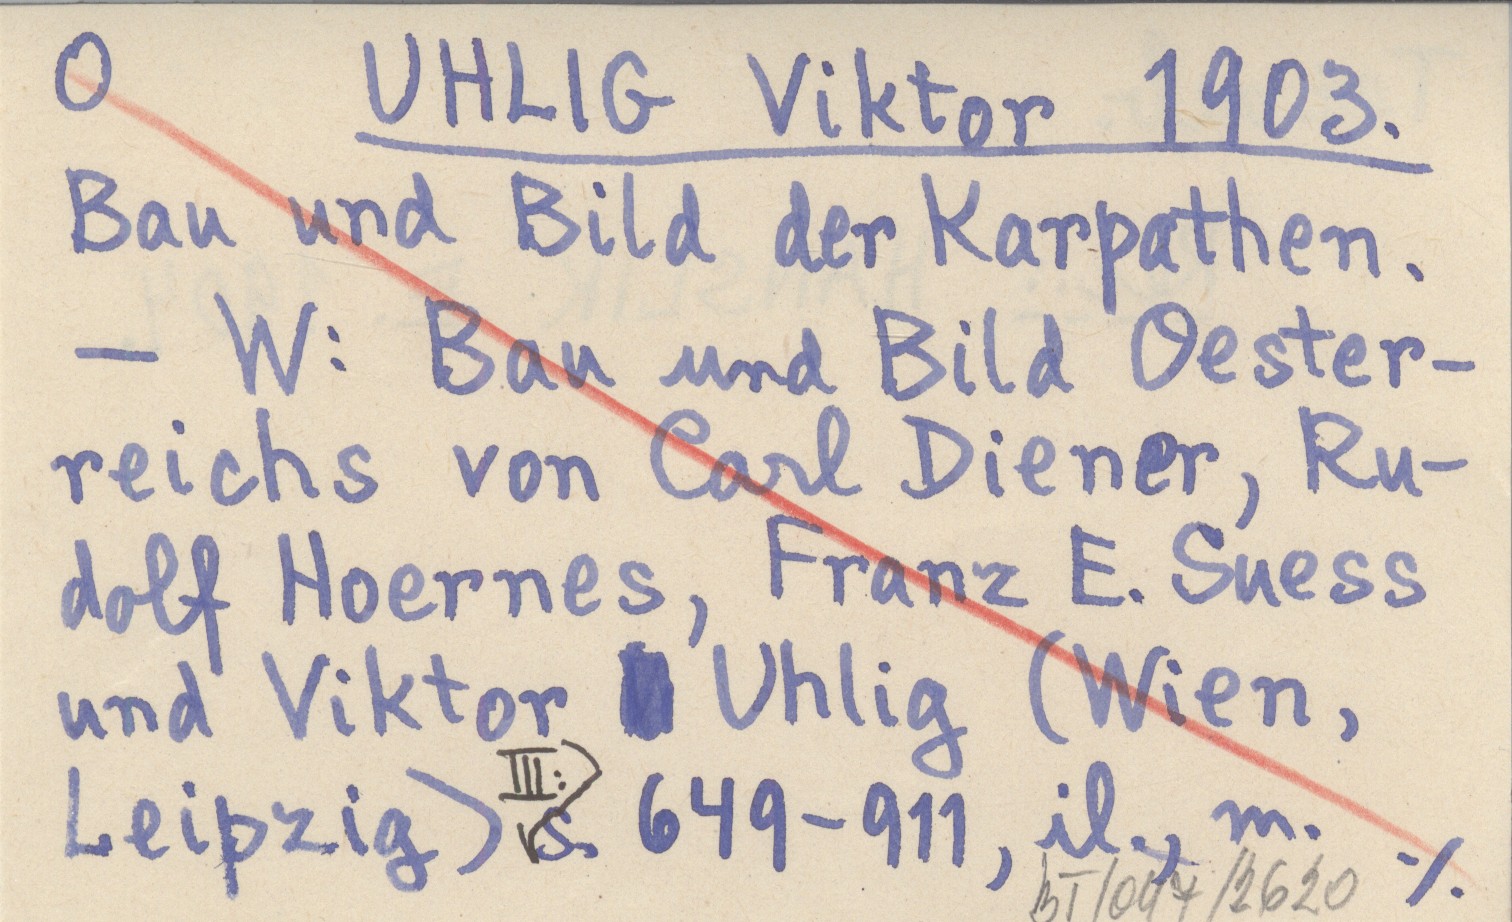 O UHLIG Viktor 1903.
Bau und Bild der Karpathen.
— W: Bau und Bild Oester-
reichs von Carl Diener, Ru-
dolf Hoernes, Franz E. Suess
und Viktor Uhlig (Wien,
Leipzig) III: s. 649-911, il., m. ·/.
BT/047/2620